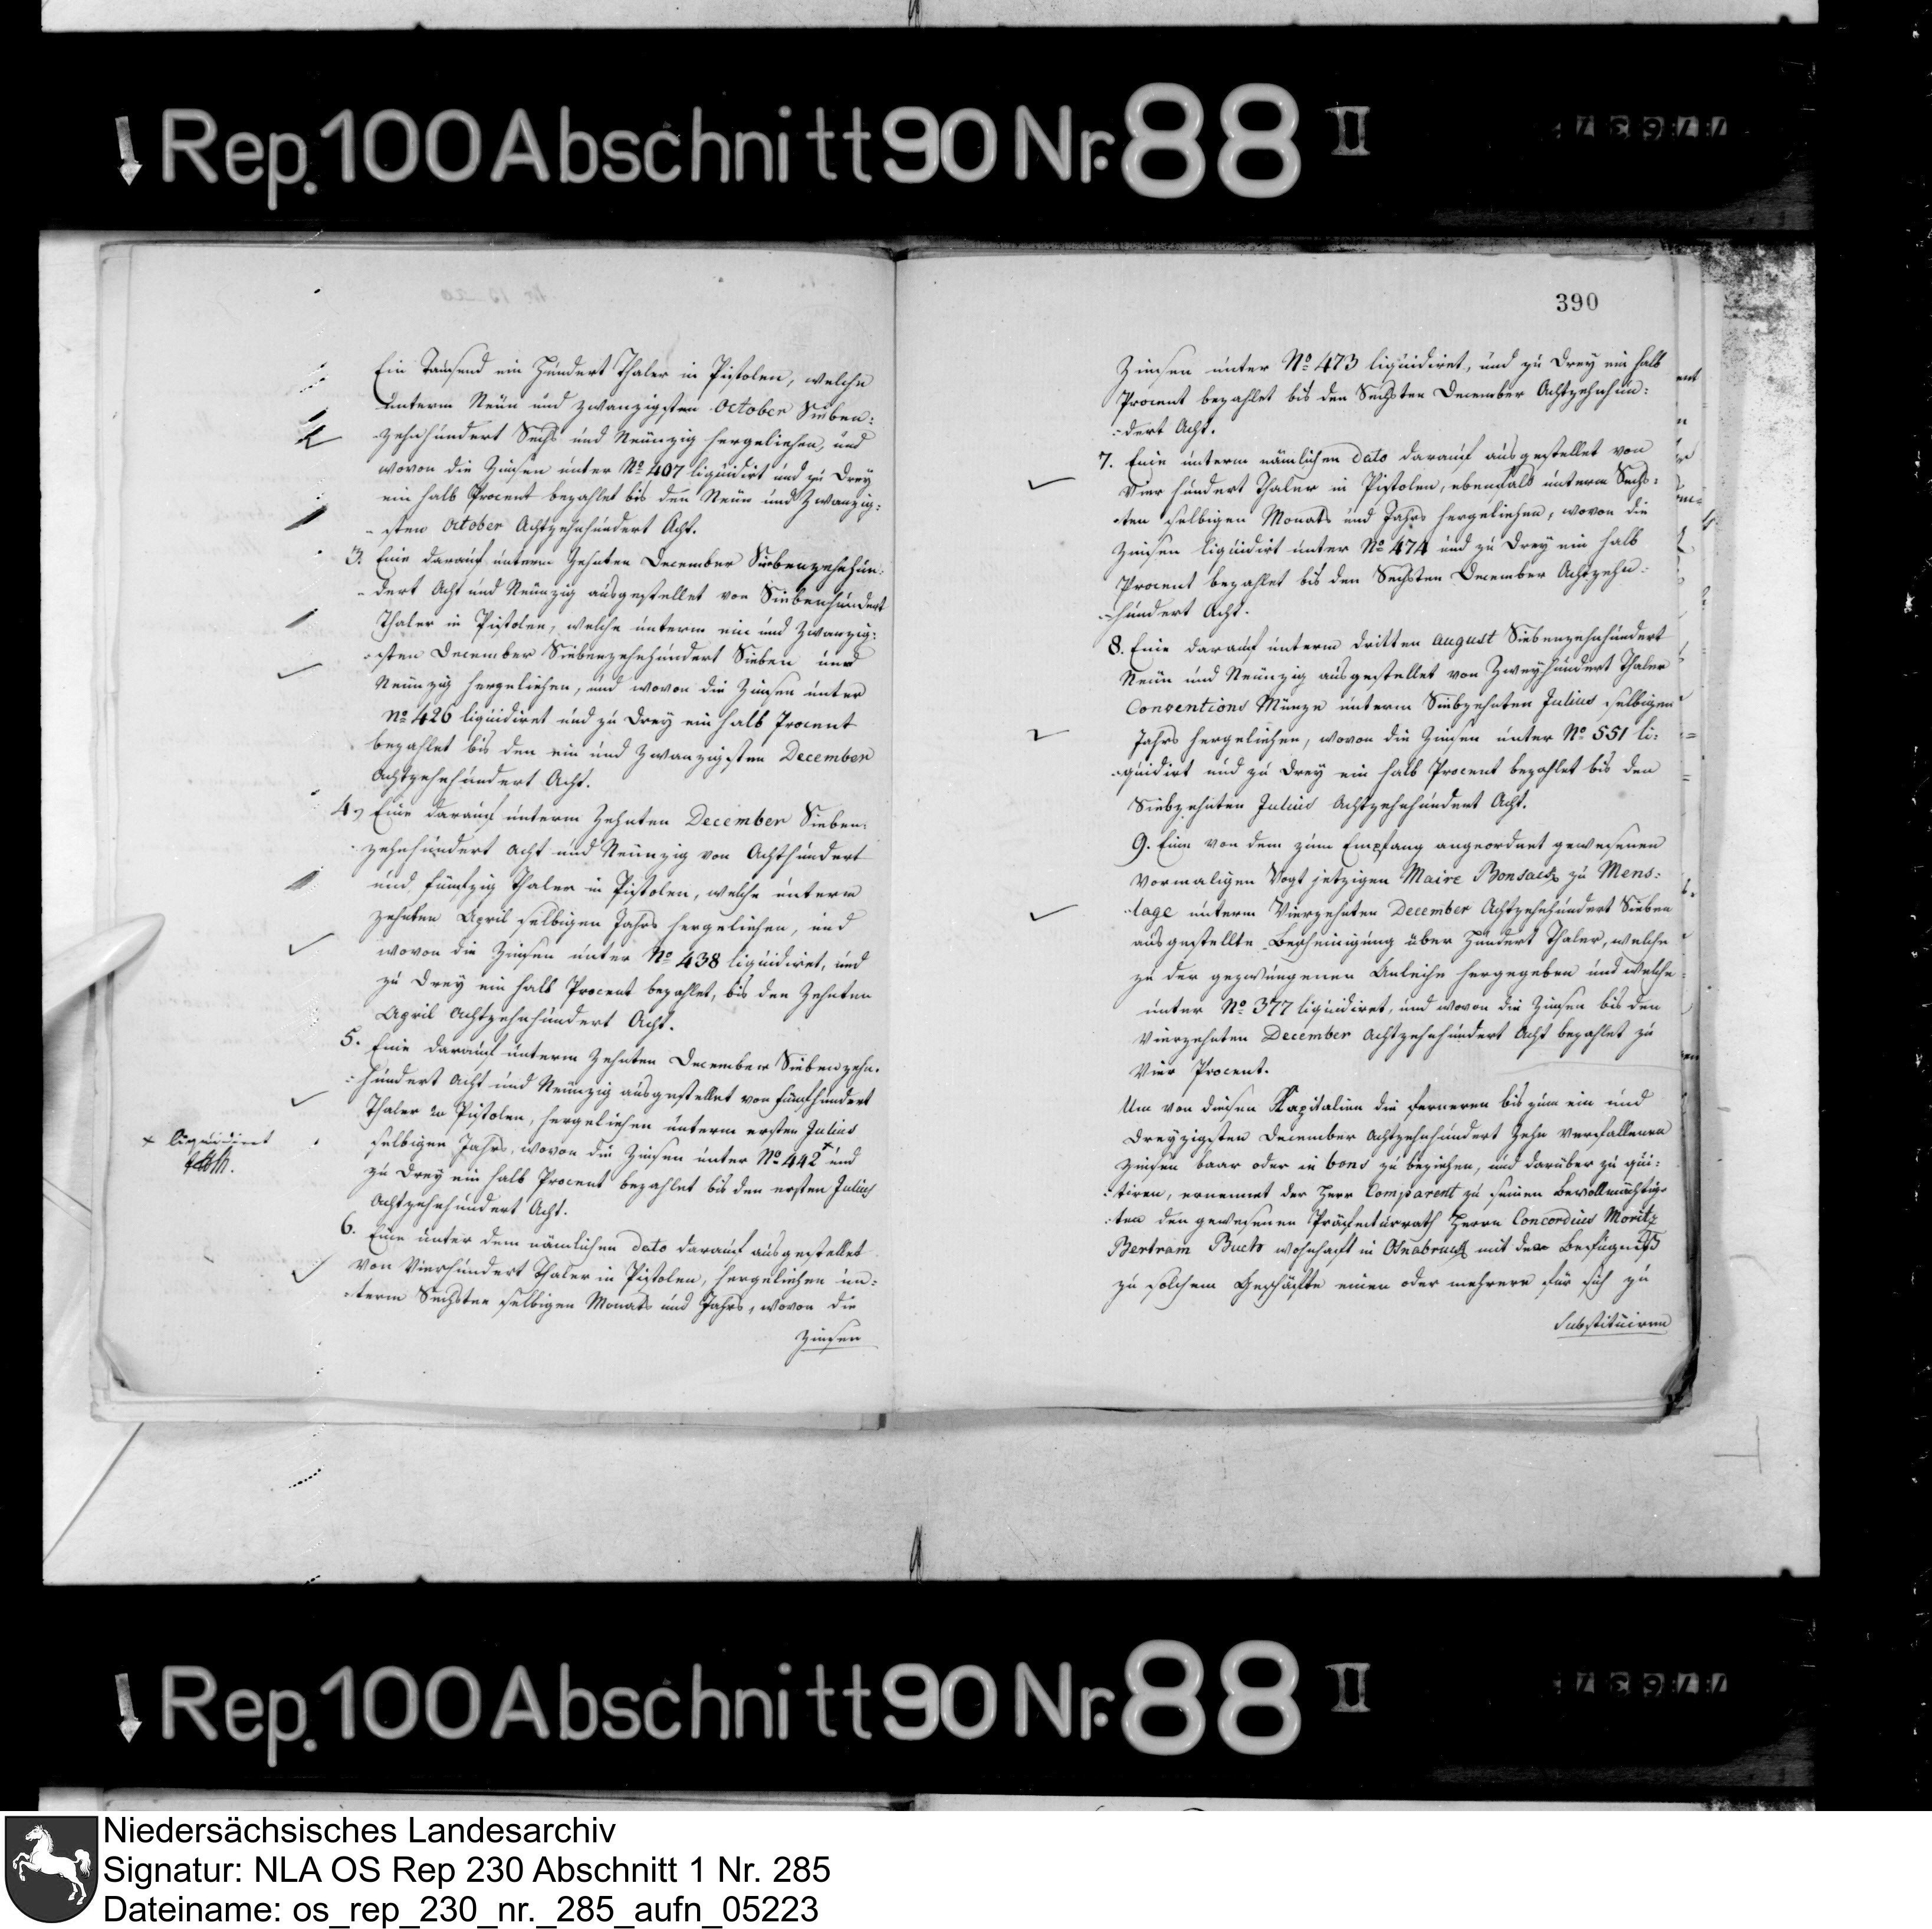 ↓ Rep. 100 Abschnitt 90 Nr. 88 II
Ein Tausend ein Hundert Thaler in Pistolen, welche
unterm Neun und zwanzigsten October Sieben:
zehnhundert Sechs und Neunzig hergeliehen, und
wovon die Zinsen unter No 407 liquidirt und zu Drey
ein halb Procent bezahlet bis den Neun und Zwanzig:
sten October Achtzehnhundert Acht.
3. Eine darauf unterm Zehnten December Siebenzehnhun:
dert Acht und Neunzig ausgestellet von Siebenhundert
Thaler in Pistolen, welche unterm ein und Zwanzig:
sten December Siebenzehnhundert Sieben und
Neunzig hergeliehen, und wovon die Zinsen unter
No 426 liquidiret und zu Drey ein halb Procent
bezahlet bis den ein und Zwanzigsten December
Achtzehnhundert Acht.
4, Eine darauf unterm Zehnten December Sieben:
zehnhundert acht und Neunzig von Achthundert
und funfzig Thaler in Pistolen, welche unterm
zehnten April selbigen Jahrs hergeliehen, und
wovon die Zinsen unter No 438 liquidiret, und
zu Drey ein halb Procent bezahlet, bis den Zehnten
April Achtzehnhundert Acht.
5. Eine darauf unterm Zehnten December Siebenzehn:
hundert Acht und Neunzig ausgestellet von funfhundert
Thaler in Pistolen, hergeliehen unterm ersten Julius
selbigen Jahrs, wovon die Zinsen unter No 442 x und
x liquidiret
zu Drey ein halb Procent bezahlet bis den ersten Julius
Achtzehnhundert Acht.
6. Eine unter dem nämlichen dato darauf ausgestellet
von Vierhundert Thaler in Pistolen, hergeliehen un:
term Sechsten selbigen Monats und Jahrs, wovon die
Zinsen
390
Zinsen unter No 473 liquidiret, und zu Drey ein halb
Procent bezahlet bis den Sechsten December Achtzehnhun:
dert Acht.
7. Eine unterm nämlichen dato darauf ausgestellet von
Vier hundert Thaler in Pistolen, ebenfals unterm Sechs:
ten selbigen Monats und Jahrs hergeliehen, wovon die
Zinsen liquidirt unter No 474 und zu Drey ein halb
Procent bezahlet bis den Sechsten December Achtzehn:
hundert Acht.
8. Eine darauf unterm dritten august Siebenzehnhundert
Neun und Neunzig ausgestellet von Zweyhundert Thaler
Conventions Münze unterm Siebzehnten Julius selbigen
Jahrs hergeliehen, wovon die Zinsen unter No 551 li:
quidirt und zu Drey ein halb Procent bezahlet bis den
Siebzehnten Julius Achtzehnhundert Acht.
9. Eine von dem zum Empfang angeordnet gewesenen
Vormaligen Vogt jetzigen Maire Bonsack zu Mens:
lage unterm Vierzehnten December Achtzehnhundert Sieben
ausgestellte Bescheinigung über Hundert Thaler, welche
zu der gezwungenen Anleihe hergegeben und welche
unter No 377 liquidiret, und wovon die Zinsen bis den
Vierzehnten December Achtzehnhundert Acht bezahlet zu
Vier Procent.
Um von diesen Kapitalien die ferneren bis zum ein und
Dreyzigsten December Achtzehnhundert Zehn verfallenen
Zinsen baar oder in bons zu beziehen, und darüber zu qui:
tiren, ernennet der Herr Comparent zu seinen Bevollmächtig:
ten den gewesenen Präfecturrath Herrn Concordius Moritz
Bertram Buch wohnhaft in Osnabruck mit der Befugniß
zu solchem Geschäfte einen oder mehrere für sich zu
substituiren
↓ Rep. 100 Abschnitt 90 Nr. 88 II
Niedersächsisches Landesarchiv
Signatur: NLA OS Rep 230 Abschnitt 1 Nr. 285
Dateiname: os_rep_230_nr._285_aufn_05223